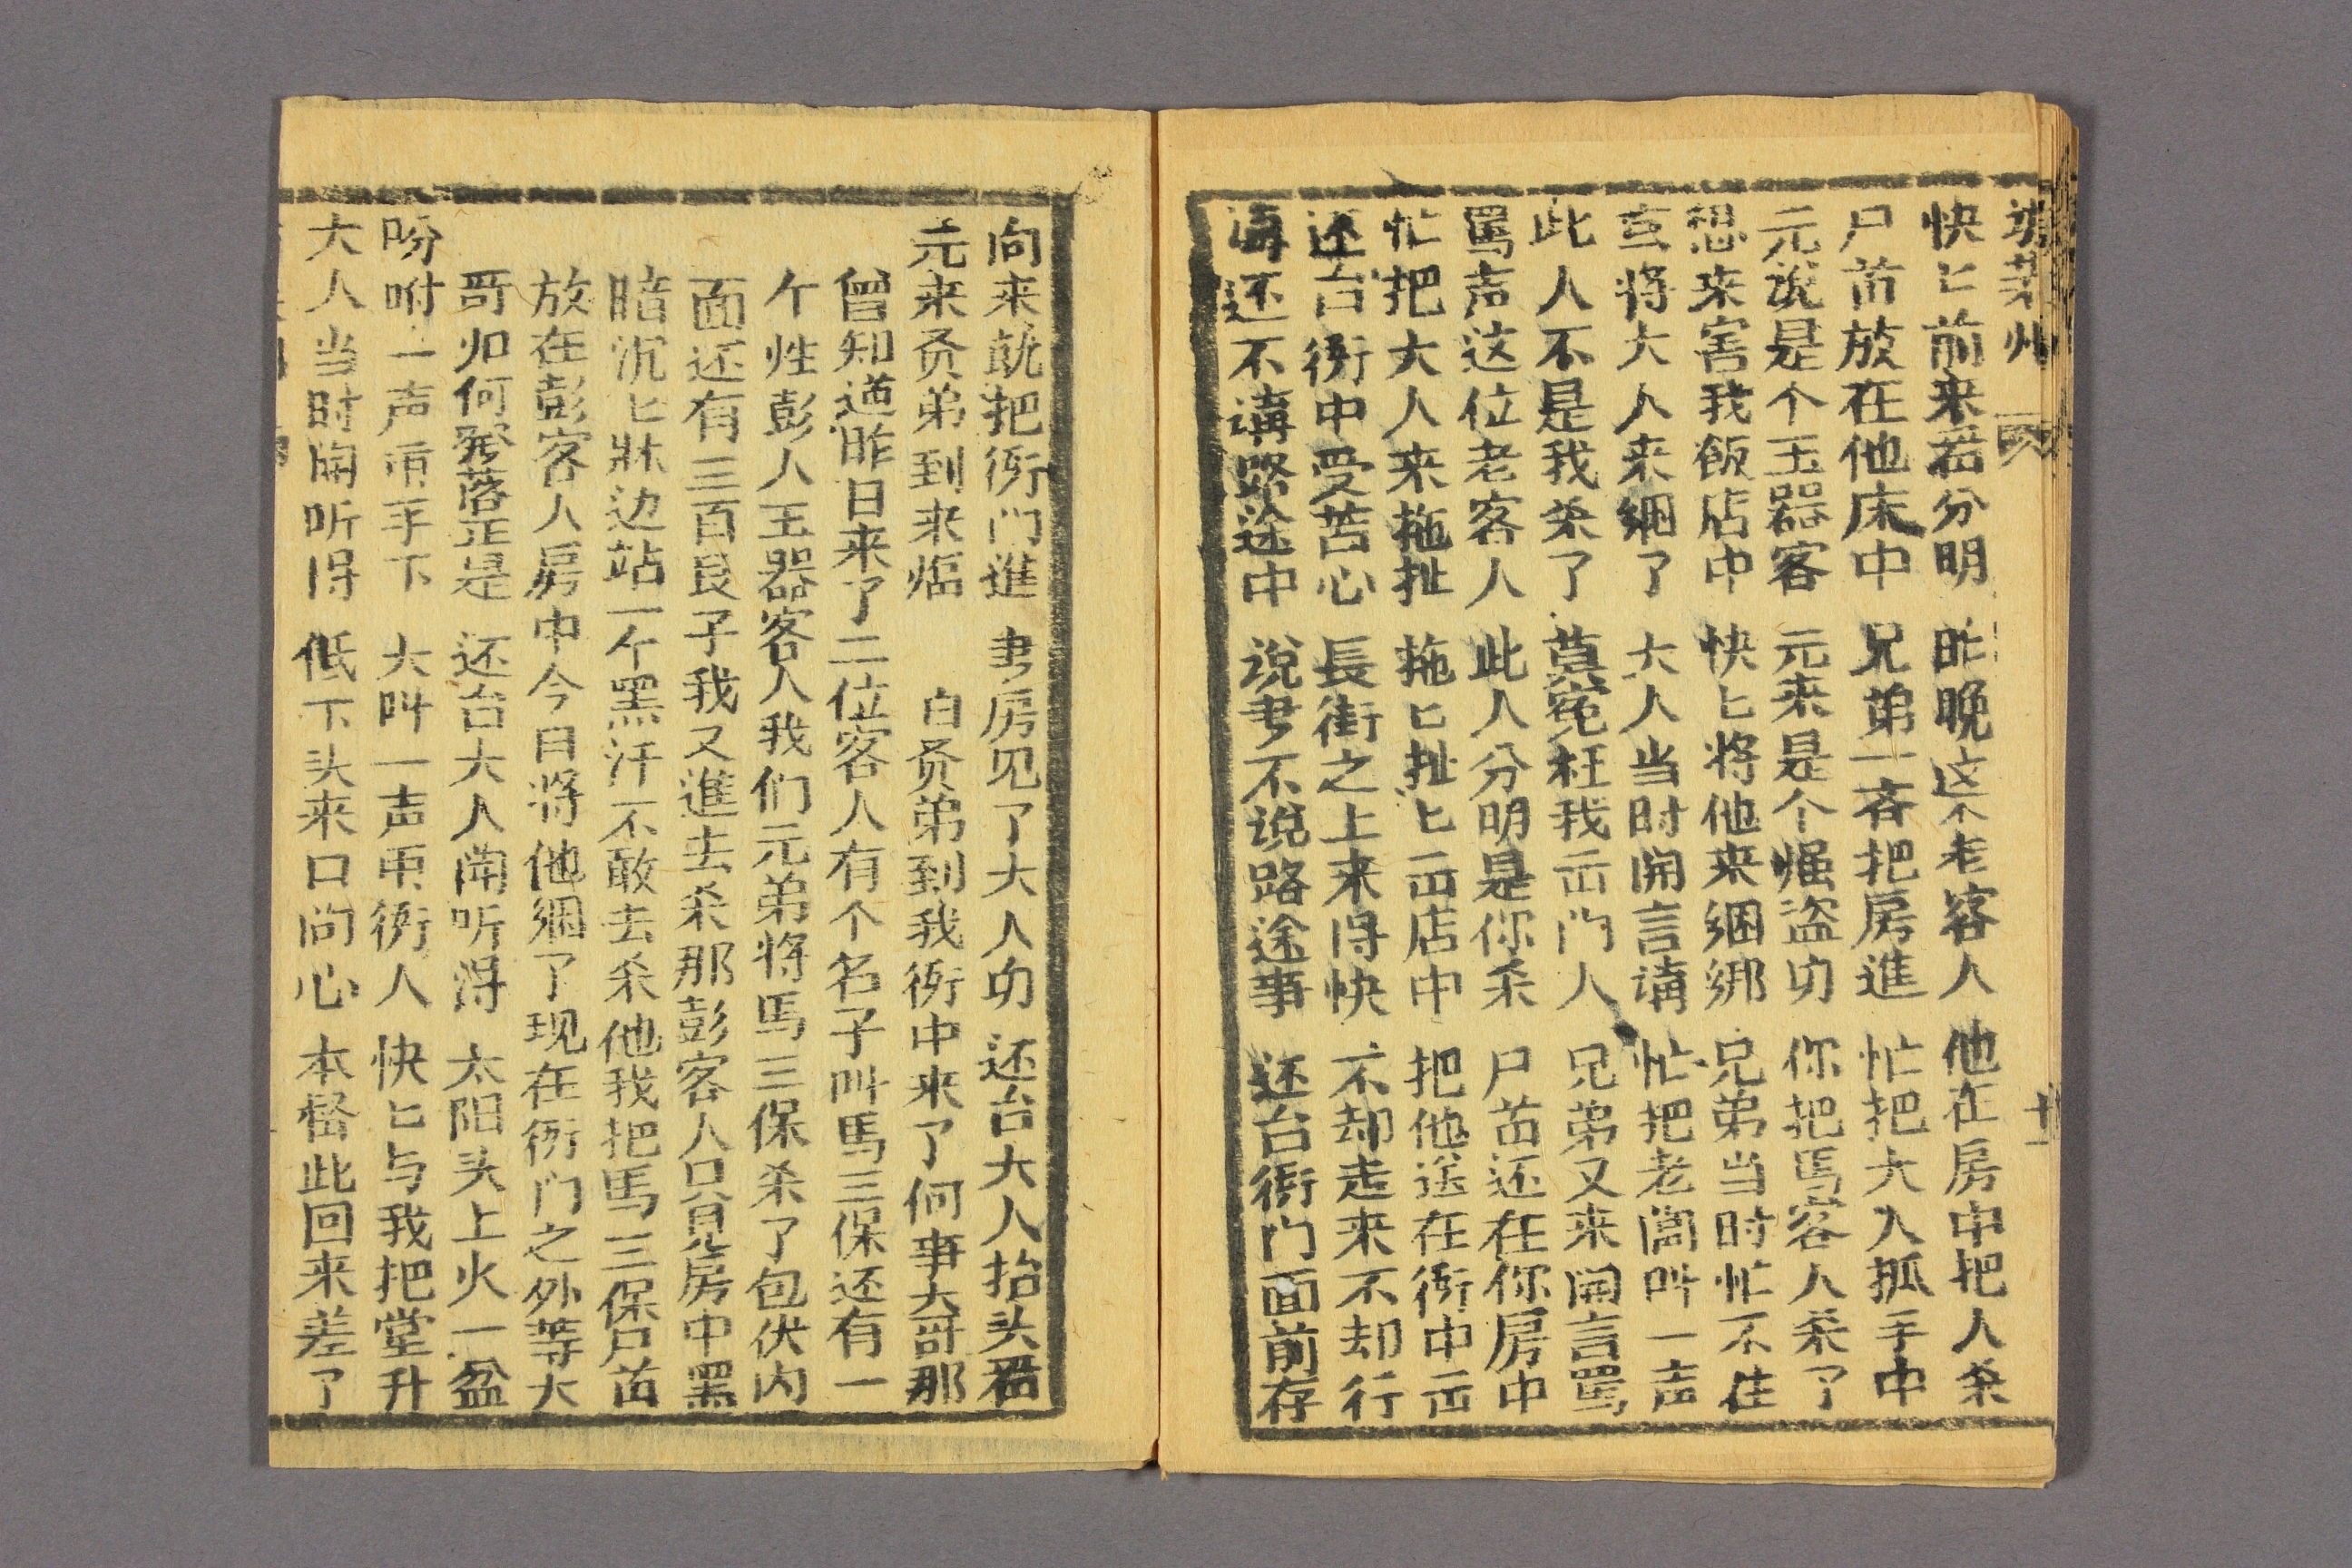 快匕前来看分明 昨晚这个老客人 他在房中把人杀
尸首放在他床中 兄弟一斉把房進 忙把大人抓手中
元说是个玉器客 元来是个强盗功 你把馬客人杀了
想来害我飯店中 快匕将他来綑綁 兄弟当时忙不住
玄将大人来綑了 大人当时開言講 忙把老闆叫一声
此人不是我杀了 莫冤枉我出门人 兄弟又来開言罵
罵声这位老客人 此人分明是你杀 尸首还在你房中
忙把大人来拖扯 拖匕扯匕出店中 把他送在衙中去
还台衙中受苦心 長街之上来得快 不却走来不却行
再还不講路途中 说書不说路途事 还台衙门面前存
向来就把衙门進 書房见了大人功 还台大人抬头看
元来贤弟到来临 白贤弟到我衙中来了何事大哥那
曾知道昨日来了二位客人有个名子叫馬三保还有一
个性彭人玉器客人我们元弟将馬三保杀了包伏内
面还有三百良子我又進去杀那彭客人只見房中黑
暗沉匕牀边站一个黑汗不敢去杀他我把馬三保尸首
放在彭客人房中今日将他綑了现在衙门之外等大
哥如何發落正是 还台大人闻听得 太阳头上火一盆
吩咐一声甫手下 大叫一声甫衙人 快匕与我把堂升
大人当时闻听得 低下头来口问心 本督此回来差了